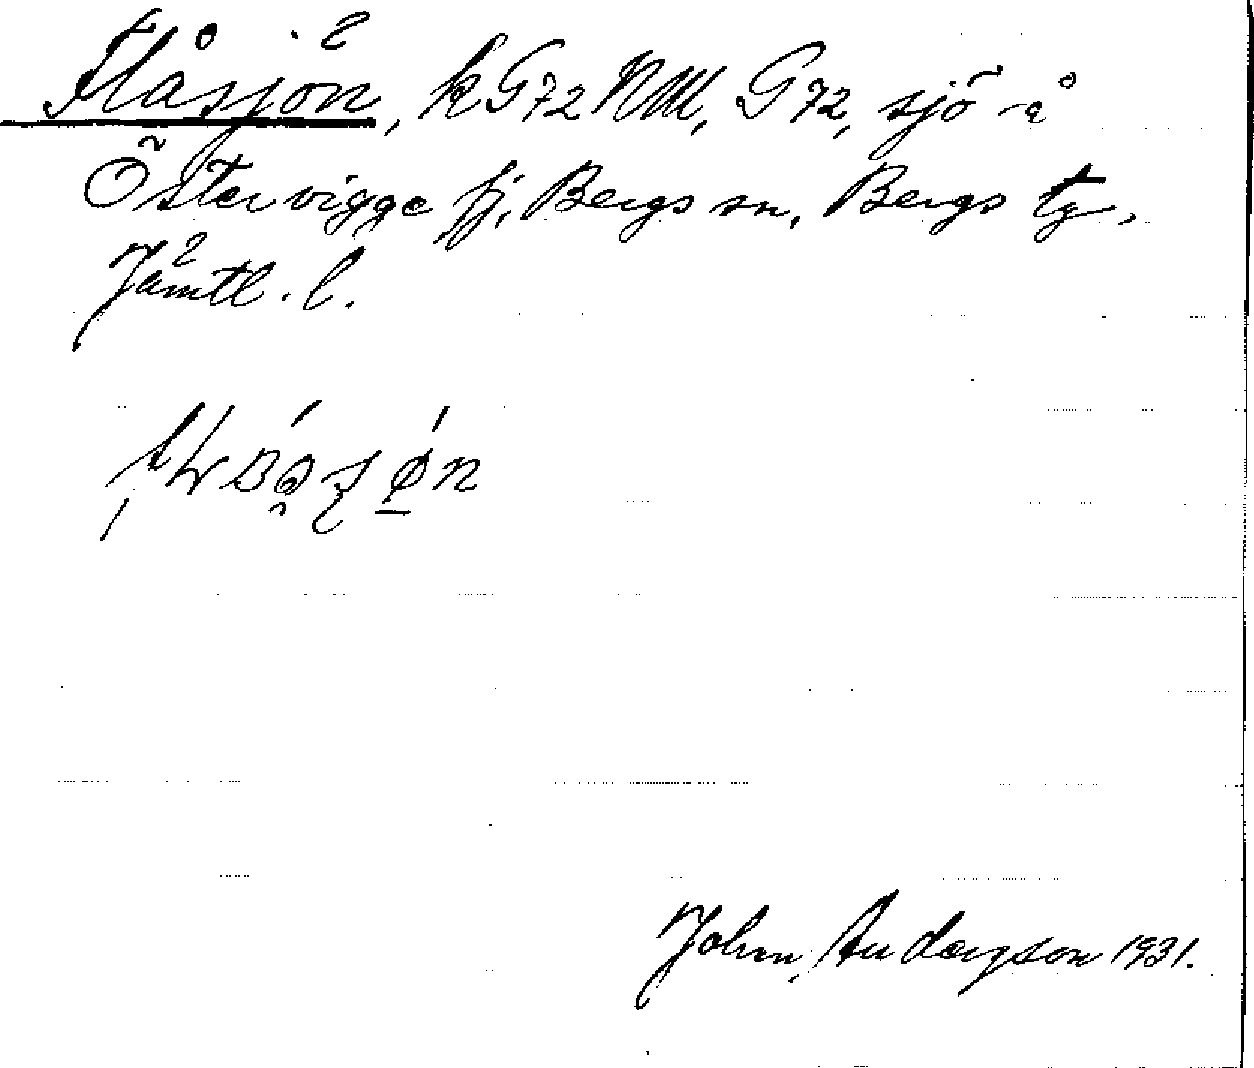 Flåsjön, k G72 NM, G72, sjö å
Östervigge fj, Bergs sn, Bergs tg,
Jämtl. l.
John, Andersson 1931.